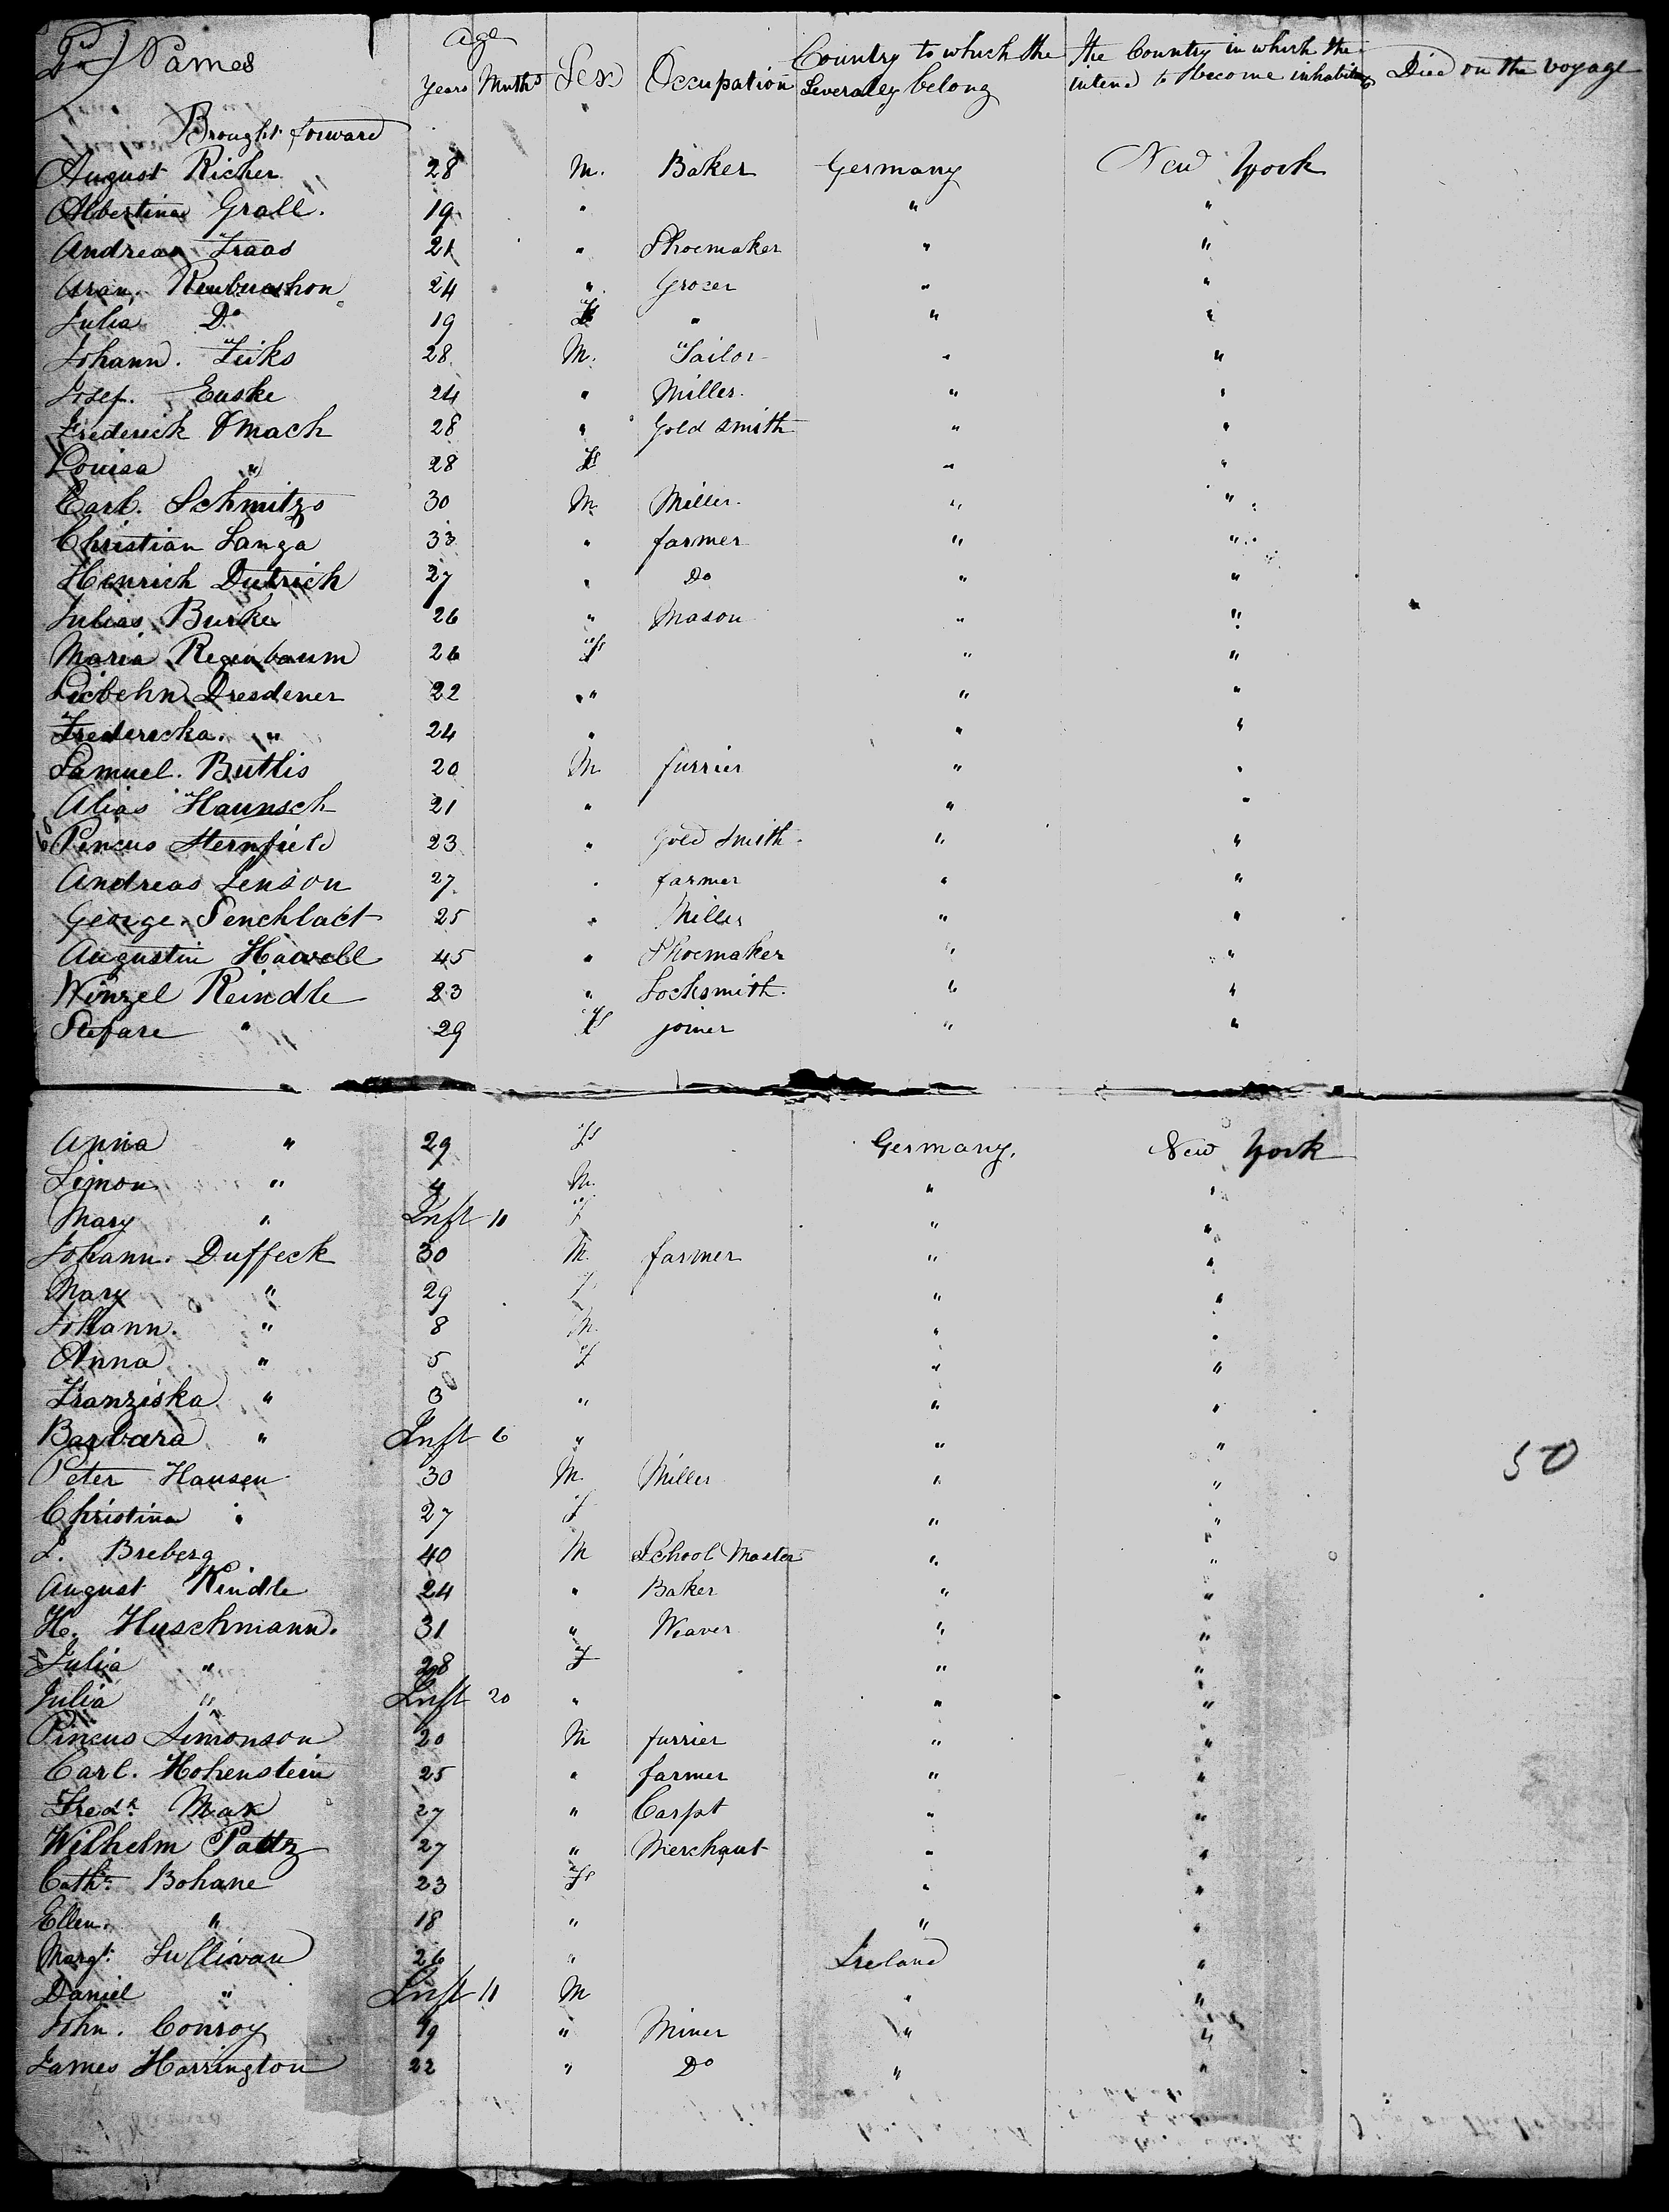 2nd) Names Age Years Mnths Sex Occupation Country to which the Severaley belong the Country in which the intend to become inhabitants Died on the voyage
Brought forward
August Richer 28 M. Baker Germany New York
Albertina Grall. 19 " " "
Andreas Fraas 21 " Shoemaker " "
Aran. 24 " Grocer " "
Julia Do 19 F " " "
Johann. Feiks 28 M. Tailor " "
Josef. Euske 24 " Miller. " "
Frederick 28 " Gold smith " "
Louisa " 28 F " "
Carl. Schmitzs 30 M Miller. " "
Christian Langa 33 " farmer " "
Henrich Dutrich 27 " Do " "
Julias Burke 26 " Mason " "
Maria Regenbaum 26 F " "
Liebehn Dresdener 22 " " "
Fredericka. " 24 " " "
Samuel. Buttis 20 M furrier " "
Alias Haunsch 21 " " "
Pincus Sternfield 23 " Gold Smith. " "
Andreas Lenson 27 " farmer " "
George. Senchlact 25 " Miller " "
Augustin Hawell 45 " Shoemaker " "
Winzel Reindle 23 " Locksmith. " "
Stefare " 29 F joiner " "
Anna " 29 F Germany. New York
Simon " 4 M. " "
Mary " Inft 11 F " "
Johann. Duffeck 30 M. farmer " "
Mary " 29 F " "
Johann. " 8 M. " "
Anna " 5 F " "
Franziska " 3 " " "
Barbara " Inft 6 " " "
50
Peter Hansen 30 M. Miller " "
Christina " 27 F " "
L. Breberg 40 M School Master " "
August Kindle 24 " Baker " "
H. Huschmann. 31 " Weaver " "
Julia " 28 F " "
Julia " Inft 20 " " "
Pincus Simonson 20 M furrier " "
Carl. Hohenstein 25 " farmer " "
Fredk Max 27 " Carpt " "
Wilhelm Paltz 27 " Merchant " "
Cathe Bohane 23 F " "
Ellen. " 18 " " "
Margt Sullivan 26 " Ireland "
Daniel " Inft 11 M " "
John. Conroy 19 " Miner " "
James Harrington 22 " Do " "